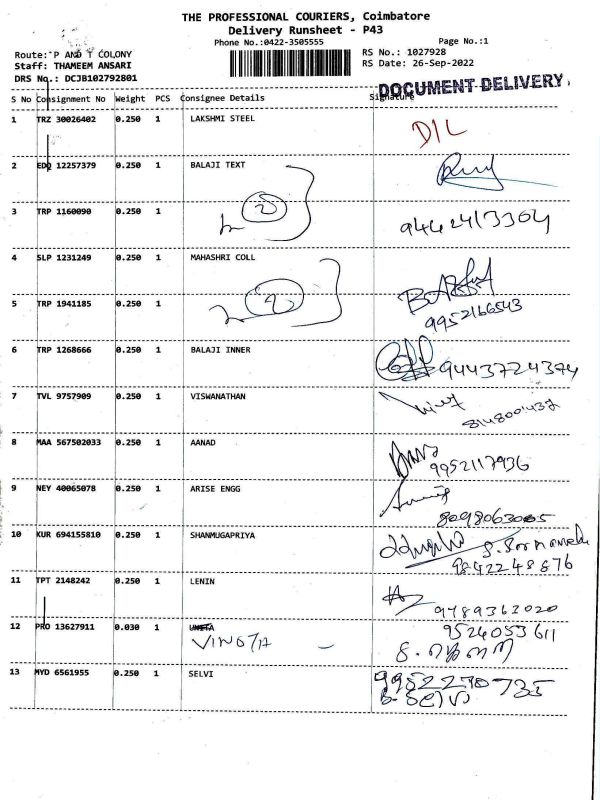 THE PROFESSIONAL COURIERS, Coimbatore
Delivery Runsheet - P43
Phone No.:0422-3505555
Page No.:1
Route: P AND T COLONY
RS No.: 1027928
Staff: THAMEEM ANSARI
RS Date: 26-Sep-2022
DRS No.: DCJB102792801
DOCUMENT DELIVERY
S No Consignment No Weight PCS Consignee Details Signature
1 TRZ 30026402 0.250 1 LAKSHMI STEEL D/L
2 EDQ 12257379 0.250 1 BALAJI TEXT
2
3 TRP 1160090 0.250 1 9442413304
4 SLP 1231249 0.250 1 MAHASHRI COLL
2
5 TRP 1941185 0.250 1 9952166543
6 TRP 1268666 0.250 1 BALAJI INNER 9443724374
7 TVL 9757909 0.250 1 VISWANATHAN
8 MAA 567502033 0.250 1 AANAD
9952117936
9 NEY 40065078 0.250 1 ARISE ENGG
8098063005
10 KUR 694155810 0.250 1 SHANMUGAPRIYA
9842248876
11 TPT 2148242 0.250 1 LENIN
9789362020
12 PRO 13627911 0.030 1 9524053611
13 MYD 6561955 0.250 1 SELVI 9952270735